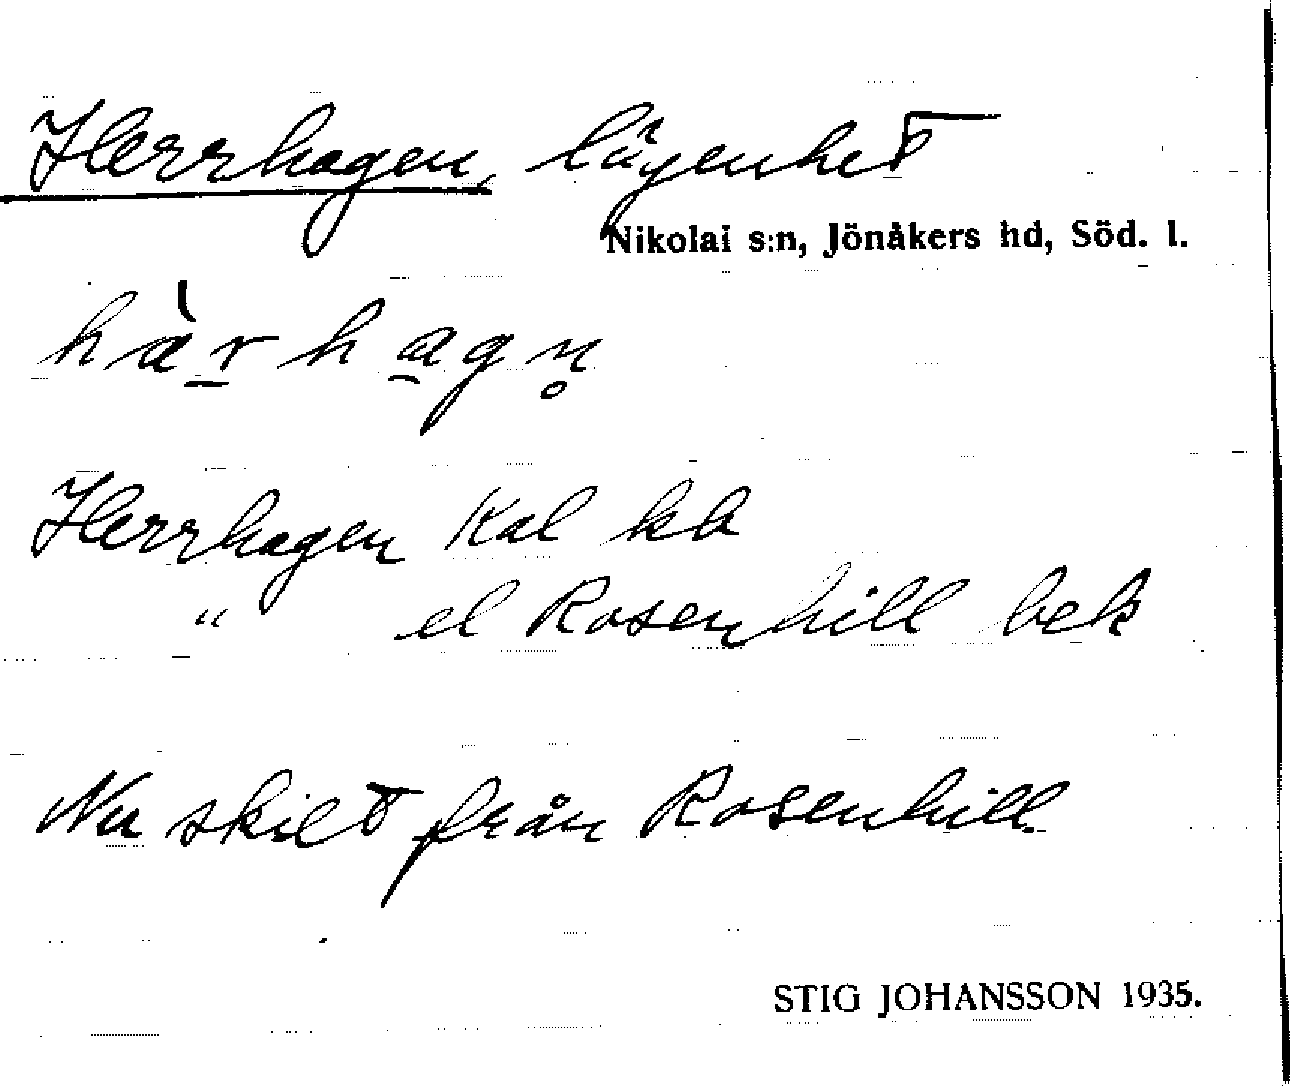 Herrhagen, lägenhet
Nikolai s:n, Jönåkers hd, Söd. l.
hàr̲ha̲gn̥
Herrhagen Kal kb
" el Rosenhill bek
Nu skilt från Rosenhill.
STIG JOHANSSON 1935.